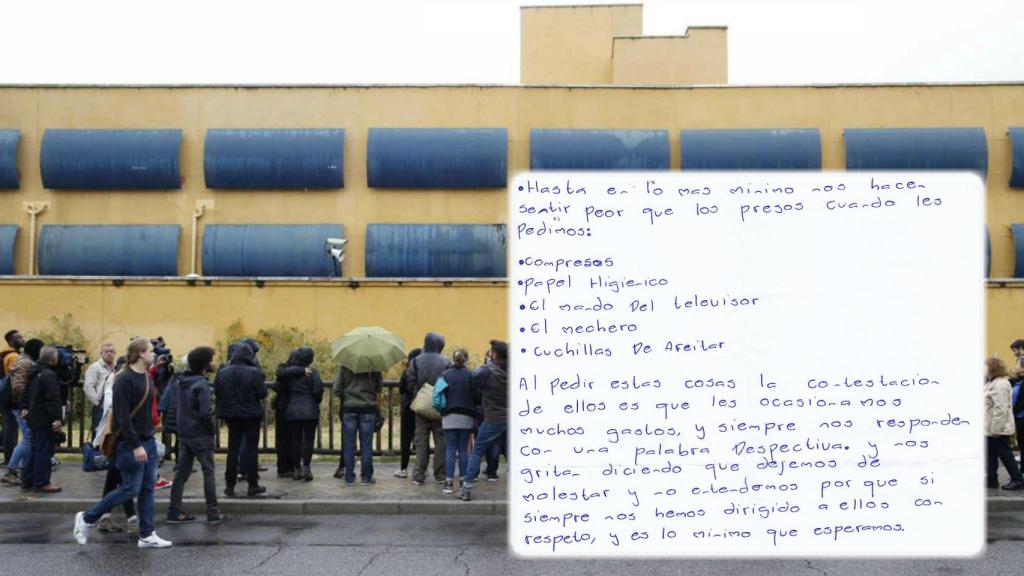 •Hasta en lo mas minimo nos hacen
sentir peor que los presos cuando les
Pedimos:
•compresas
•papel Higienico
•El mando Del televisor
•El mechero
•Cuchillas De Afeitar
Al pedir estas cosas la contestacion
de ellos es que les ocasionamos
muchos gastos, y siempre nos responden
con una palabra Despectiva. y nos
gritan diciendo que dejemos de
molestar y no entendemos por que si
siempre nos hemos dirigido a ellos con
respeto, y es lo minimo que esperamos.